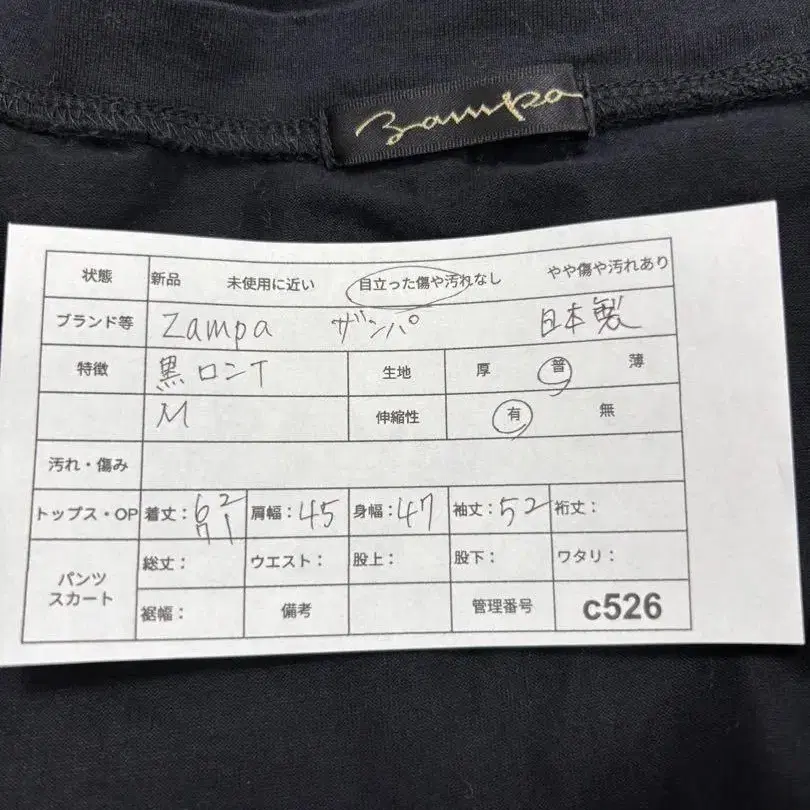 Zampa
状態 新品 未使用に近い 目立った傷や汚れなし やや傷や汚れあり
ブランド等 Zampa ザンパ 日本製
特徴 黒ロンT 生地 厚 普 薄
M 伸縮性 有 無
汚れ・傷み
トップス・OP 着丈:62 肩幅:45 身幅:47 袖丈:52 裄丈:
71
パンツ スカート 総丈: ウエスト: 股上: 股下: ワタリ:
裾幅: 備考 管理番号 c526